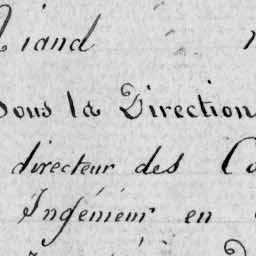 iand
Sous la Direction
directeur des Co
Ingénieur en